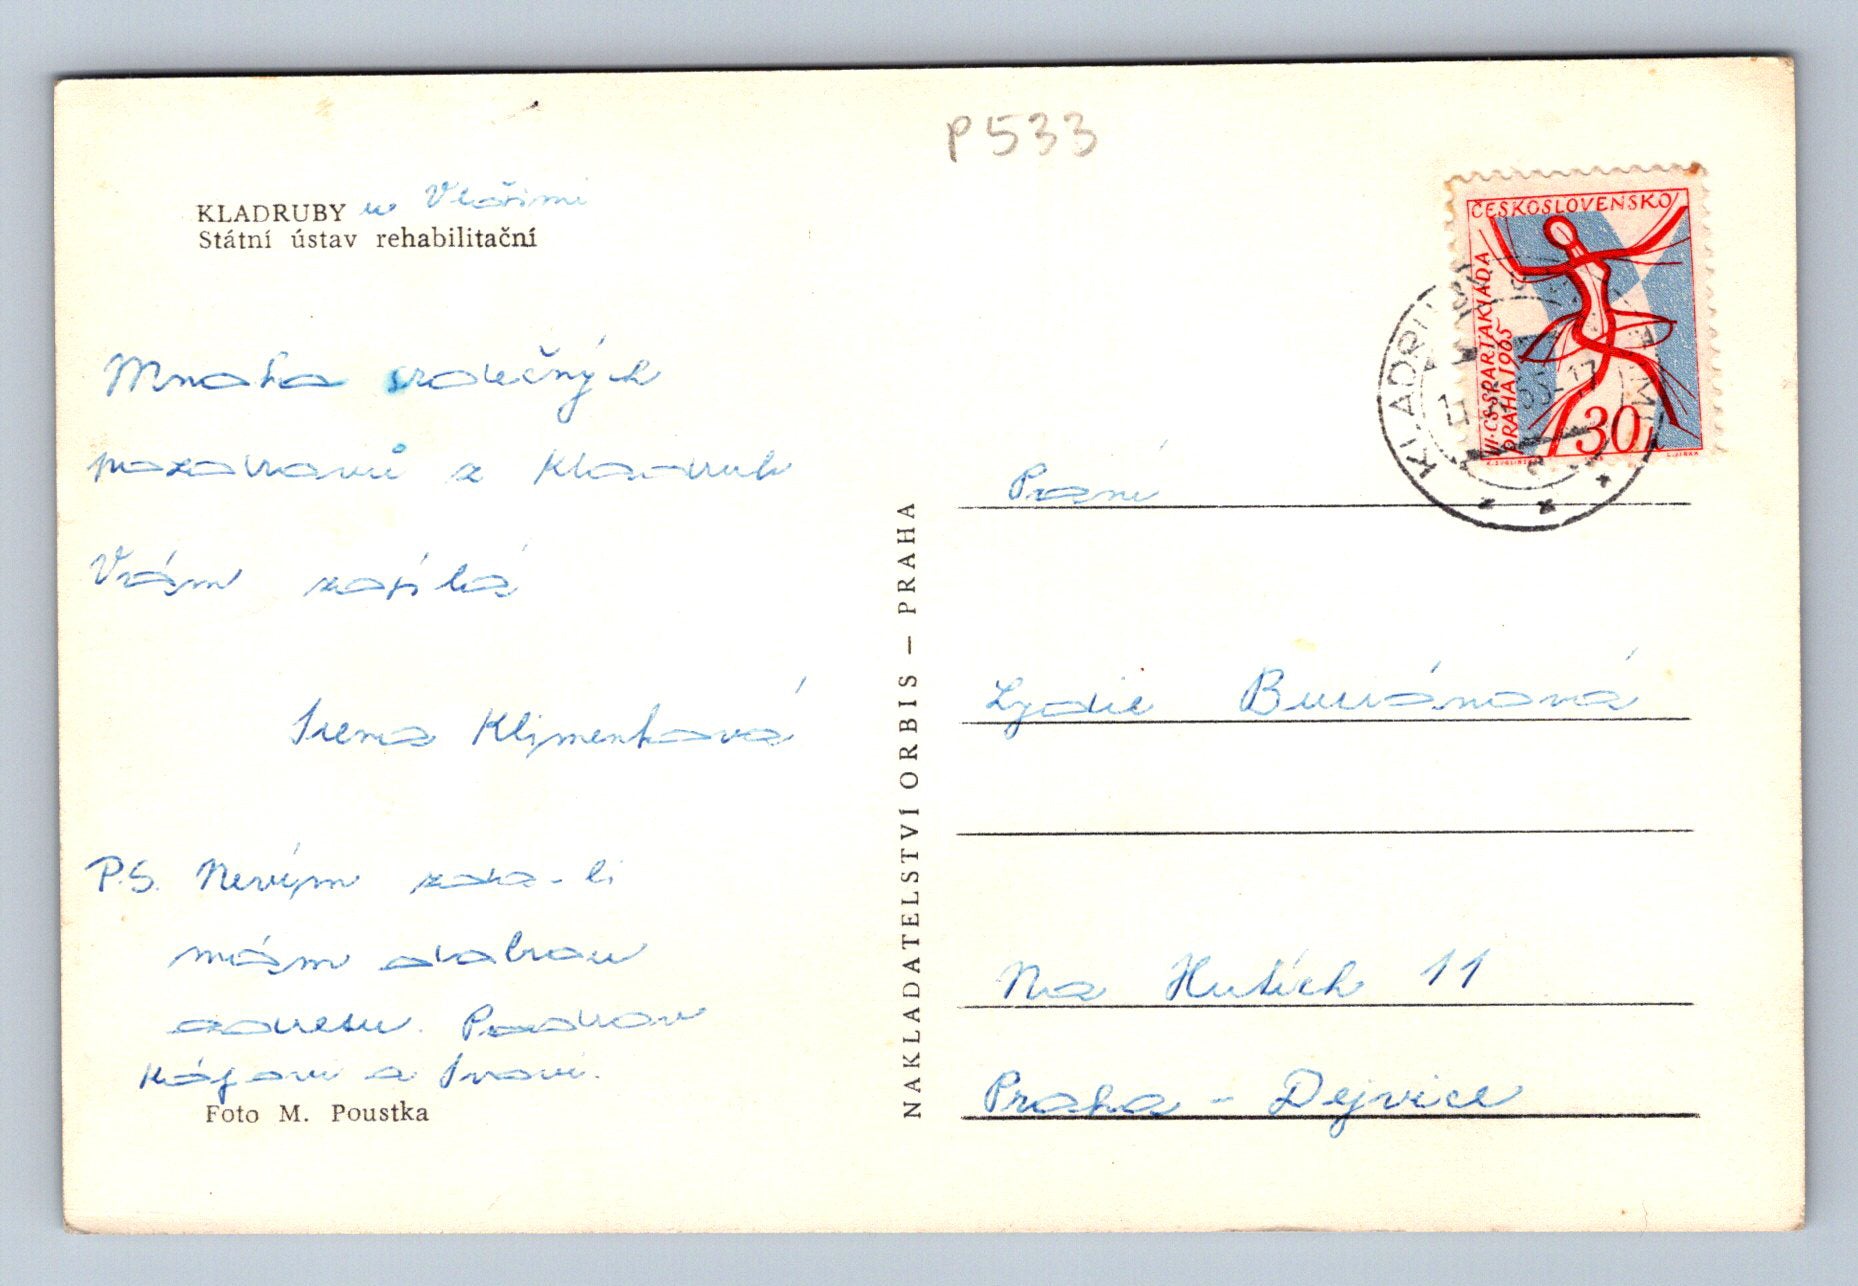 P 533
KLADRUBY u Vlašimi
Státní ústav rehabilitační
Mnoho srdečných
pozdravů z Kladrub
Vám zasílá
Irena Klimenková
P.S. Nevím zda-li
mám dobrou
adresu. Pozdrav
a Ivovi.
Foto M. Poustka
NAKLADATELSTVÍ ORBIS — PRAHA
ČESKOSLOVENSKO
III. CS. SPARTAKIÁDA
PRAHA 1965
30
KLADRUBY
Paní
Lydie Buriánová
Na Hutích 11
Praha - Dejvice